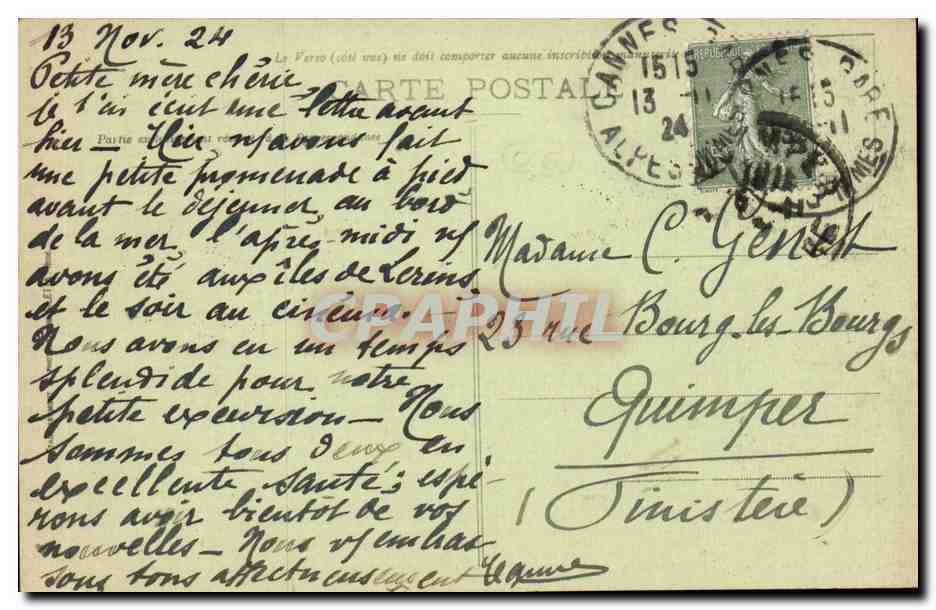 13 Nov. 24
Le Verso (côté vue) ne doit comporter aucune inscription manuscrite
CARTE POSTALE
Petite mère chérie,
je t'ai écrit une lettre avant
hier — Hier n/avons fait
une petite promenade à pied
avant le déjeuner, au bord
de la mer, l'après-midi n/
avons été aux îles de Lerins
et le soir au cinéma. —
Nous avons eu un temps
splendide pour notre
petite excursion — Nous
sommes tous deux en
excellente santé; espé-
rons avoir bientôt de vos
nouvelles — Nous v/embras
sons tous affectueusement
CANNES
1515
13 -11
24
ALPES
GARE
CANNES
Madame C. Genest
25 rue Bourg-les-Bourgs
Quimper
(Finistère)
CPAPHIL